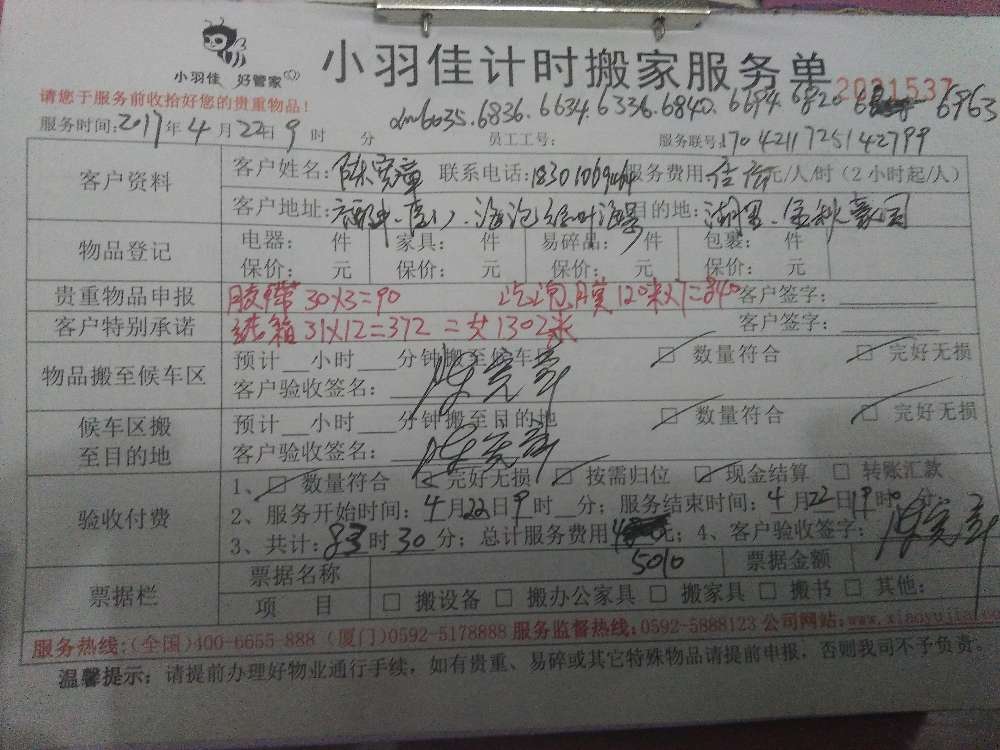 小羽佳 好管家
小羽佳计时搬家服务单
2021537
请您于服务前收拾好您的贵重物品!
6035.6836.6634.6336.6840.6694.6820 6963
服务时间:2017年4月22日9时 分 员工工号: 服务联号:1704211725142799
客户资料 客户姓名: 联系电话: 服务费用 元/人/时(2小时起/人)
客户地址: 目的地:湖里
物品登记 电器: 件 家具: 件 易碎品: 件 包裹: 件
保价: 元 保价: 元 保价: 元 保价: 元
贵重物品申报 胶带30×3=90 泡泡膜120米×7=840 客户签字:
客户特别承诺 纸箱31×12=372 =共1302 客户签字:
物品搬至候车区 预计 小时 分钟搬至候车 □ 数量符合 □ 完好无损
客户验收签名:
候车区搬至目的地 预计 小时 分钟搬至目的地 □ 数量符合 □ 完好无损
客户验收签名:
验收付费 1、□ 数量符合 □ 完好无损 □ 按需归位 □ 现金结算 □ 转账汇款
2、服务开始时间:4月22日9时 分; 服务结束时间:4月22日19时 分
3、共计:83时30分; 总计服务费用 元; 4、客户验收签字:
5010
票据栏 票据名称 票据金额
项 目 □ 搬设备 □ 搬办公家具 □ 搬家具 □ 搬书 □ 其他:
服务热线:(全国)400-6655-888 (厦门)0592-5178888 服务监督热线:0592-5888123 公司网站:
温馨提示:请提前办理好物业通行手续,如有贵重、易碎或其它特殊物品请提前申报,否则我司不予负责。